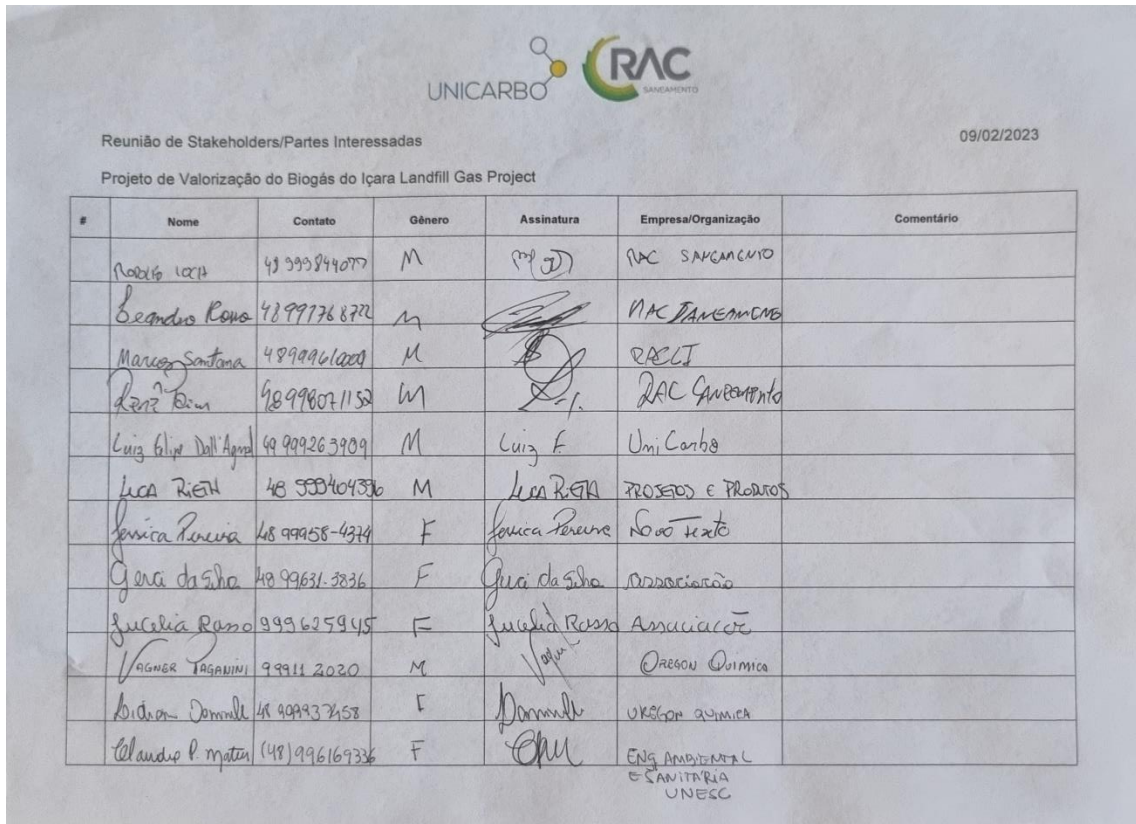 UNICARBO RAC
SANEAMENTO
Reunião de Stakeholders/Partes Interessadas 09/02/2023
Projeto de Valorização do Biogás do Içara Landfill Gas Project
# Nome Contato Gênero Assinatura Empresa/Organização Comentário
48 999844077 M RAC SANEAMENTO
Leandro 48991768722 M RAC SANEAMENTO
Marcos Santana M RACLI
48998071152 M RAC SANEAMENTO
Luiz Filipe Dall'Agnol 49 999263909 M Luiz F. UniCarbo
LUCA RIETH 48 999404396 M LUCA RIETH PROJETOS E PRODUTOS
Jessica Pereira 48 99958-4374 F Jessica Pereira Novo Texto
Gerci da Silva 48 99631-3836 F Gerci da Silva Associação
Jucelia Rosso 999625945 F Jucelia Rosso
VAGNER PAGANINI 99911 2020 M Vagner OREGON QUIMICA
F QUIMICA
(48) 996169336 F ENG AMBIENTAL
E SANITÁRIA
UNESC